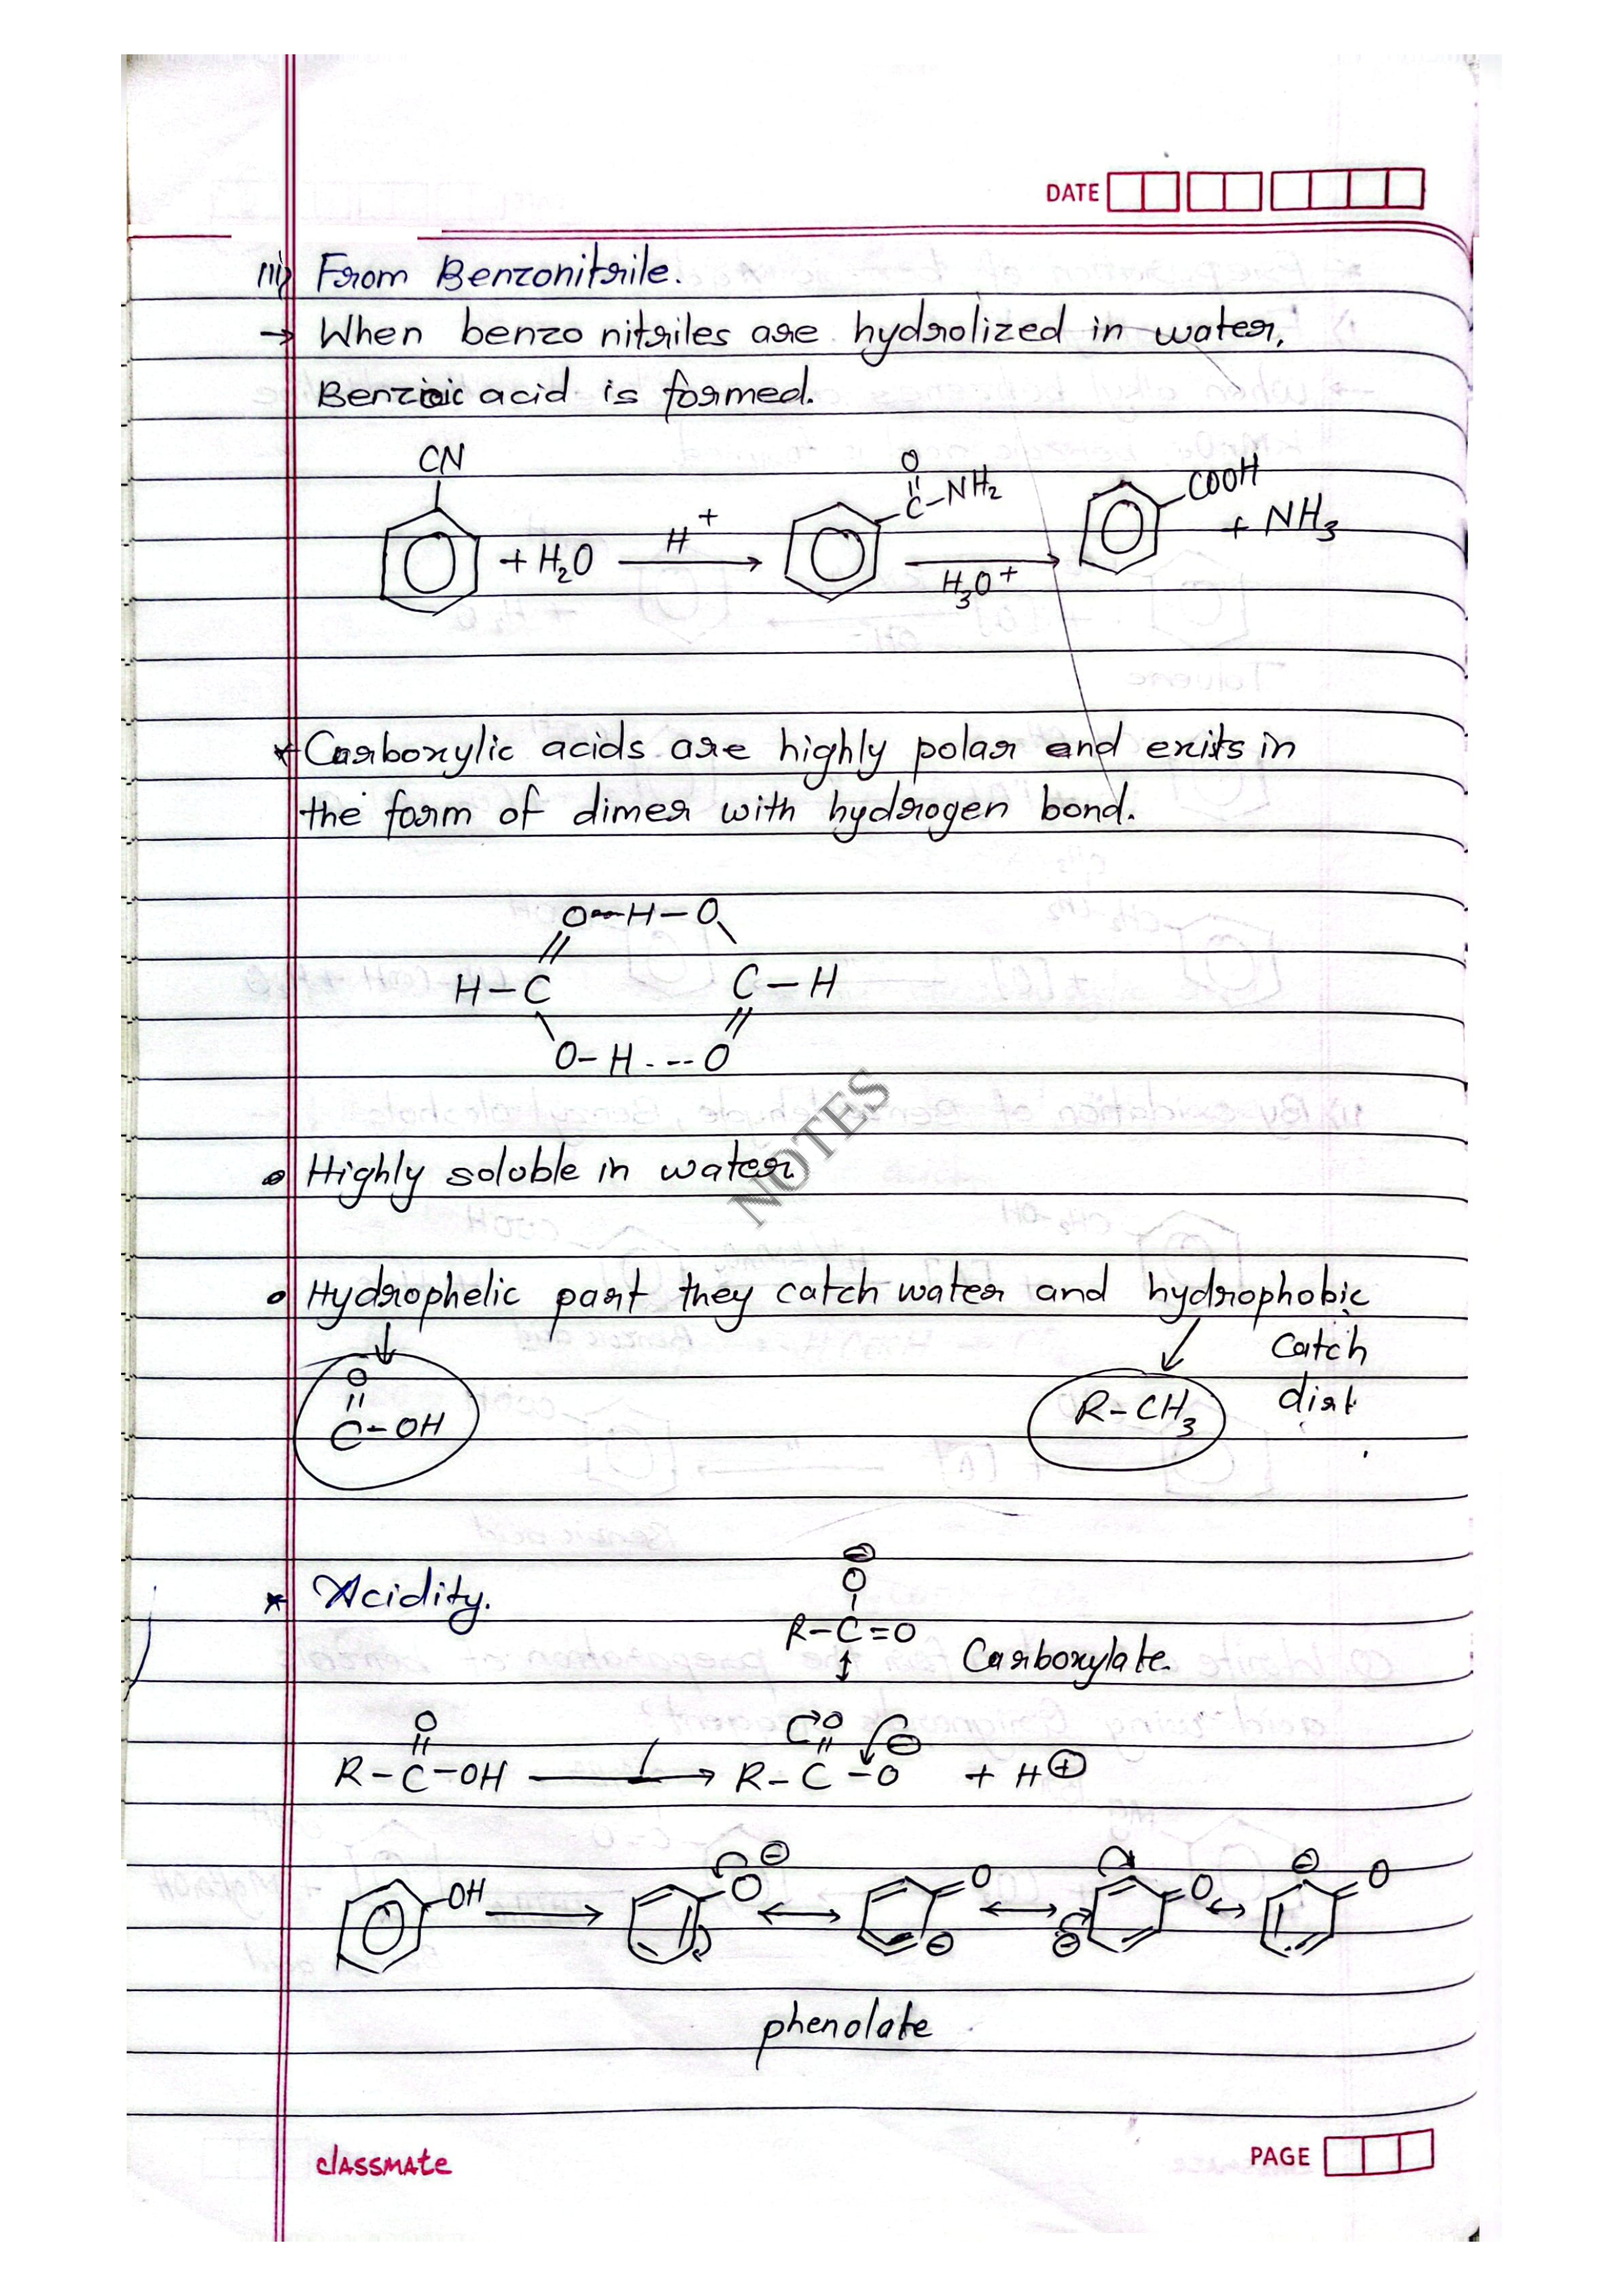 DATE
iii) From Benzonitrile.
→ When benzo nitriles are hydrolized in water,
Benzioic acid is formed.
CN
O
C-NH₂
COOH
+ H₂O
H⁺
H₃O⁺
+ NH₃
* Carboxylic acids are highly polar and exits in
the form of dimer with hydrogen bond.
O---H-O
H-C C-H
O-H----O
• Highly soluble in water
NOTES
• Hydrophelic part they catch water and hydrophobic
catch
dirt
O
C-OH
R-CH₃
* Acidity.
⊖
O
R-C=O
Carboxylate
O O ⊖
R-C-OH → R-C-O + H⊕
OH O⊖ O ⊖ O ⊖ O ⊖
phenolate
classmate PAGE